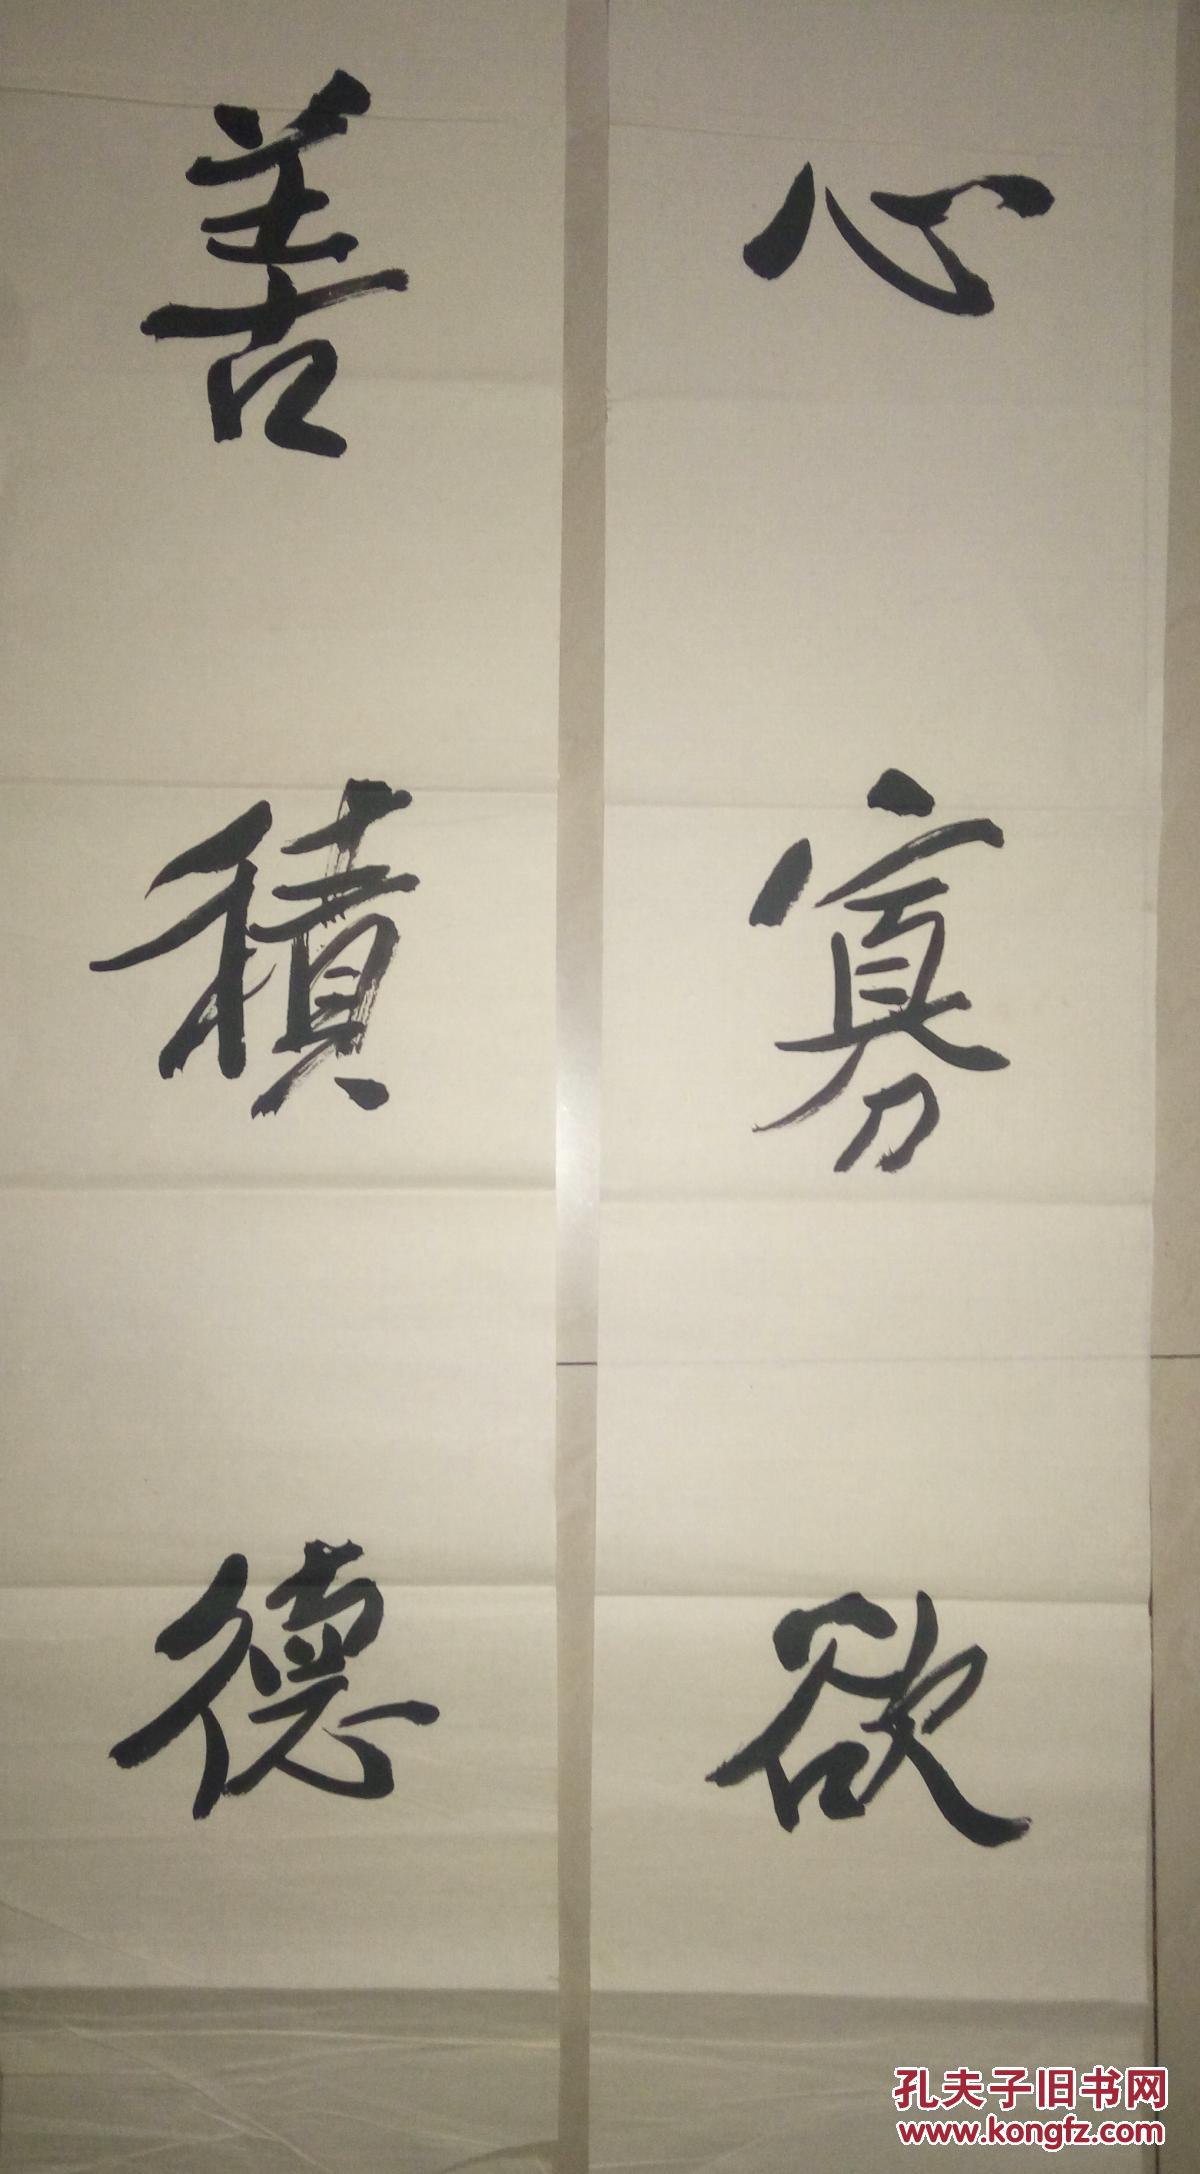 心寡欲
善積德
孔夫子旧书网
www.kongfz.com